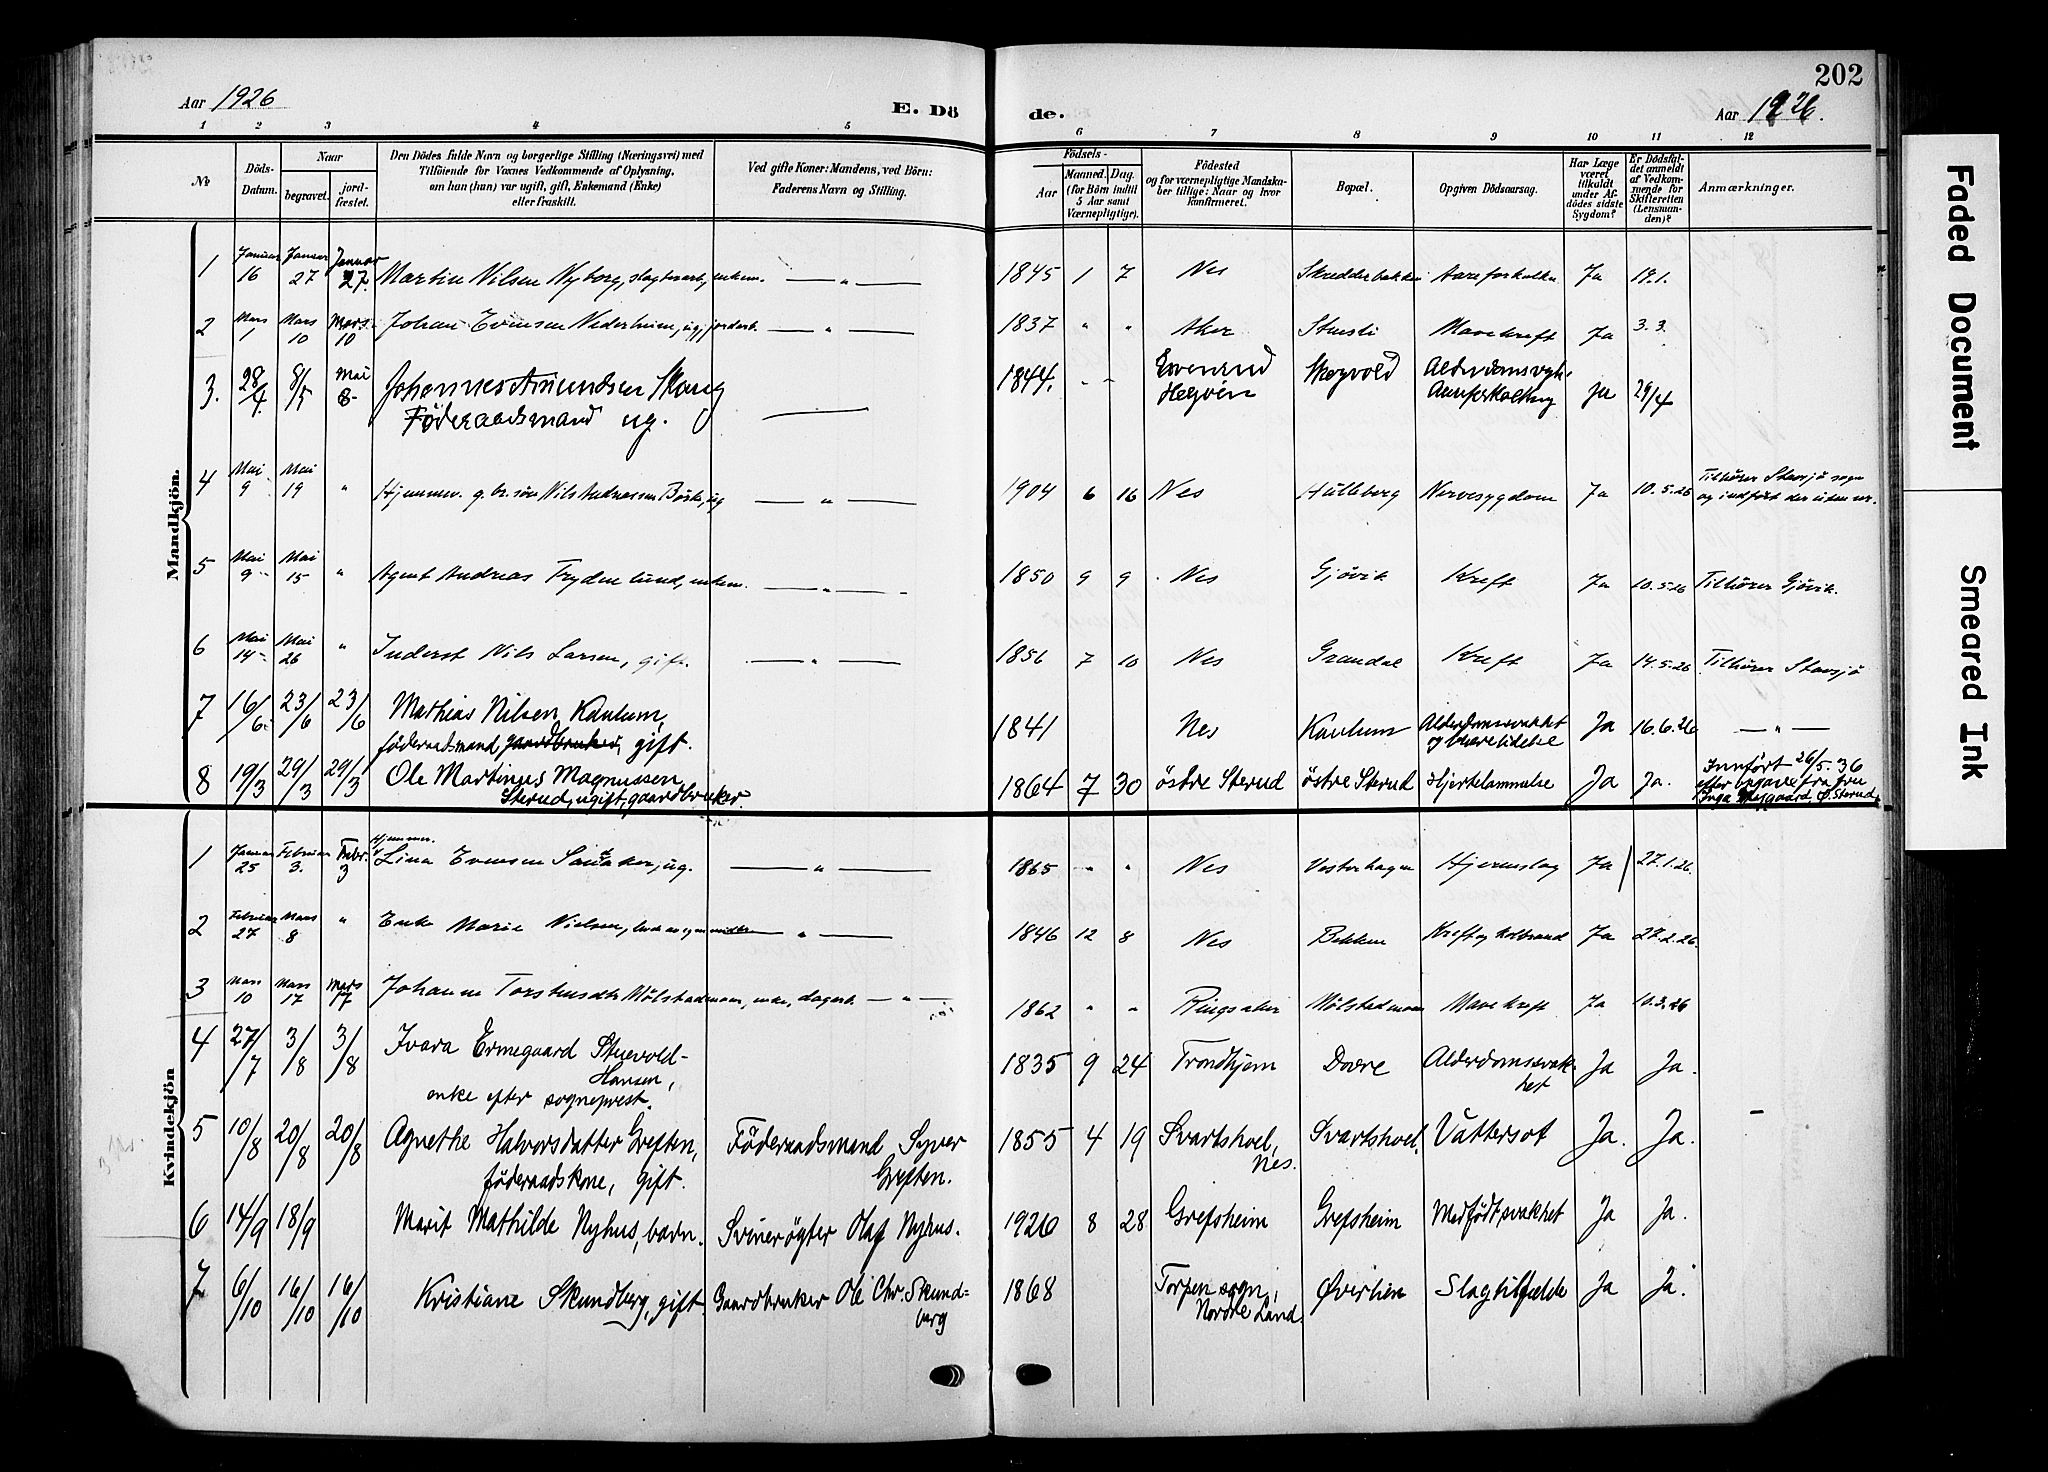 202
Aar 1926
E. Dö
de.
Aar 1926.
1 2 3 4 5 6 7 8 9 10 11 12
№
Döds-
Datum.
Naar
begravet.
jord-
fæstet.
Den Dödes fulde Navn og borgerlige Stilling (Næringsvei) med
Tilföiende for Voxnes Vedkommende af Oplysning,
om han (hun) var ugift, gift, Enkemand (Enke)
eller fraskilt.
Ved gifte Koner: Mandens, ved Börn:
Faderens Navn og Stilling.
Födsels-
Aar
Maaned. Dag.
(for Börn indtil
5 Aar samt
Værnepligtige).
Födested
og for værnepligtige Mandska-
ber tillige: Naar og hvor
konfirmeret.
Bopæl.
Opgiven Dödsaarsag.
Har Læge
været
tilkaldt
under Af-
dödes sidste
Sygdom?
Er Dödsfal-
det anmeldt
af Vedkom-
mende for
Skifteretten
(Lensman-
den)?
Anmærkninger.
Mandkjön.
1 Januar 16 Januar 27 Januar 27. Martin Nilsen Nyborg, enkem. — „ — 1845 1 7 Nes Aareforkalkn Ja 19.1.
2 Mars 1 Mars 10 Mars 10 Johan Evensen ug., jordarb. — „ — 1837 „ „ Aker Stuesti Mavekreft Ja 3.3.
3. 28/4. 8/5 Mai 8- Johannes Amundsen Skaug
Föderaadsmand ug. — 1844. „ - Evenrud
Helgøen Skogvold
Aareforkalkning Ja 29/4
4 Mai 9 Mai 19 „ Hjemmev. g.br. søn Nils Børke, ug — „ — 1904 6 16 Nes Hulleberg Nervesygdom Ja 10.5.26 Tilhører Stavsjø sogn
og indført der uden nr.
5 Mai 9 Mai 15 „ Agent Andreas Frydenlund, enkem. — „ — 1850 9 9 Nes Gjøvik Kreft Ja 10.5.26 Tilhører Gjøvik.
6 Mai 14 Mai 26 „ Inderst Nils Larsen, gift. — „ — 1856 7 10 Nes Grandal Kreft Ja 14.5.26 Tilhører Stavsjø
7 16/6. 23/6 23/6 Mathias Nilsen Kaulum,
föderaadsmand gaardbruker, gift. 1841 Nes Kaulum Alderdomssvakhet
og blærelidelse Ja 16.6.26 — „ —
8 19/3 29/3 29/3 Ole Martinus Magnussen
Sterud, ugift, gaardbruker. 1864 7 30 östre Sterud östre Sterud Hjertelammelse Ja Ja. Innført 26/5.36
efter opgave fra fru
Inga Ø. Sterud.
Kvindekjön
1 Januar 25 Februar 3. Febr. 3 Hjemmev.
Lina Evensen Sandaker, ug. — „ — 1865 „ „ Nes Vesterhagen Hjerneslag Ja 27.1.26.
2 Februar 27 Mars 8 „ Enke Marie Nielsen, — „ — 1846 12 8 Nes Bekken Kreft og kolbrand Ja 27.2.26.
3 Mars 10 Mars 17 Mars 17 Johanne Torstensdtr Mølstadmoen, enke, dagarb. — „ — 1862 „ „ Ringsaker Mølstadmoen Mavekreft Ja 10.3.26
4 27/7 3/8 3/8 Ivara Ermegaard Stuevold-
Hansen,
enke efter sogneprest. 1835 9 24 Trondhjem Dovre Alderdomssvak-
het Ja Ja.
5 10/8 20/8 20/8 Agnethe Halvorsdatter Greften,
föderaadskone, gift. Föderaadsmand Syver
Greften. 1855 4 19 Svartshoel,
Nes. Svartshoel. Vattersot Ja. Ja.
6 14/9 18/9 Marit Mathilde Nyhus, barn. Svinerögter Olaf Nyhus. 1926 8 28 Grefsheim Grefsheim Medfödt svakhet Ja Ja.
7 6/10 16/10 16/10 Kristiane Skundberg, gift. Gaardbruker Ole Chr. Skund=
berg 1868 Torpen sogn,
Nordre Land Øverlien Slagtilfælde Ja Ja.
Faded Document
Smeared Ink